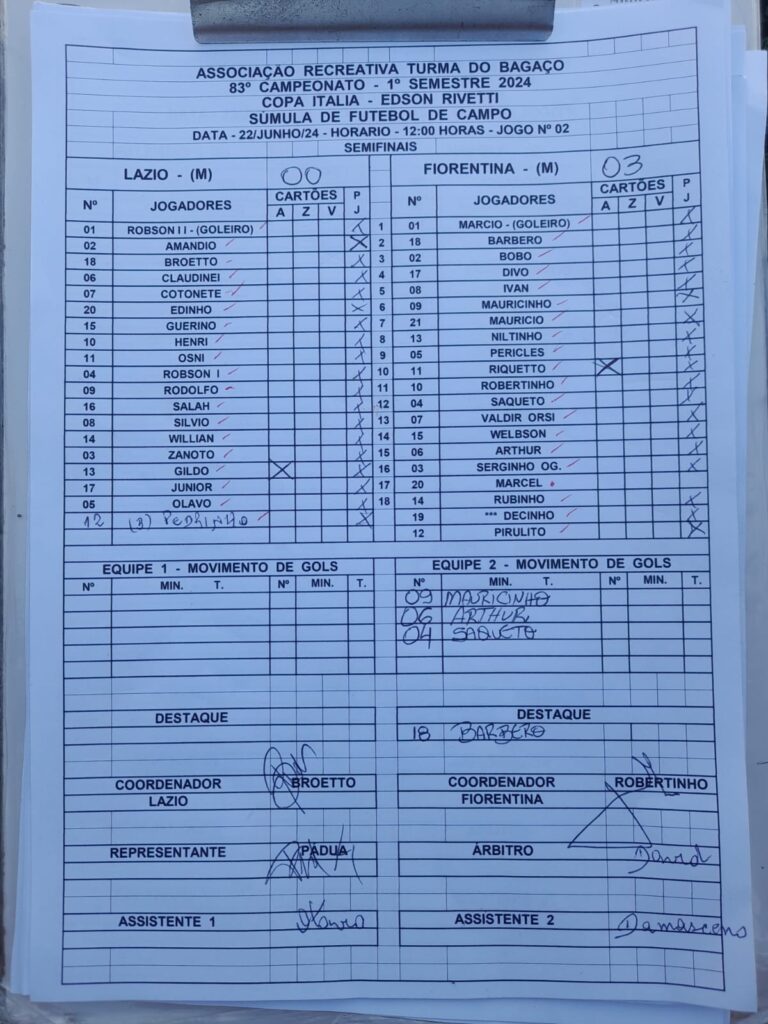 ASSOCIAÇÃO RECREATIVA TURMA DO BAGAÇO
83º CAMPEONATO - 1º SEMESTRE 2024
COPA ITALIA - EDSON RIVETTI
SÚMULA DE FUTEBOL DE CAMPO
DATA - 22/JUNHO/24 - HORARIO - 12:00 HORAS - JOGO Nº 02
SEMIFINAIS
LAZIO - (M) 00 FIORENTINA - (M) 03
Nº JOGADORES CARTÕES A Z V P J Nº JOGADORES CARTÕES A Z V P J
01 ROBSON I I - (GOLEIRO) X 1 01 MARCIO - (GOLEIRO) X
02 AMANDIO X 2 18 BARBERO X
18 BROETTO X 3 02 BOBO X
06 CLAUDINEI X 4 17 DIVO X
07 COTONETE X 5 08 IVAN X
20 EDINHO X 6 09 MAURICINHO X
15 GUERINO X 7 21 MAURICIO X
10 HENRI X 8 13 NILTINHO X
11 OSNI X 9 05 PERICLES X
04 ROBSON I X 10 11 RIQUETTO X X
09 RODOLFO X 11 10 ROBERTINHO X
16 SALAH X 12 04 SAQUETO X
08 SILVIO X 13 07 VALDIR ORSI X
14 WILLIAN X 14 15 WELBSON X
03 ZANOTO X 15 06 ARTHUR X
13 GILDO X X 16 03 SERGINHO OG. X
17 JUNIOR X 17 20 MARCEL
05 OLAVO X 18 14 RUBINHO X
12 (3) PEDRINHO X 19 *** DECINHO X
12 PIRULITO X
EQUIPE 1 - MOVIMENTO DE GOLS EQUIPE 2 - MOVIMENTO DE GOLS
Nº MIN. T. Nº MIN. T. Nº MIN. T. Nº MIN. T.
09 MAURICINHO
06 ARTHUR
04 SAQUETO
DESTAQUE DESTAQUE
18 BARBERO
COORDENADOR BROETTO COORDENADOR ROBERTINHO
LAZIO FIORENTINA
REPRESENTANTE PÁDUA ÁRBITRO David
ASSISTENTE 1 ASSISTENTE 2 Damasceno